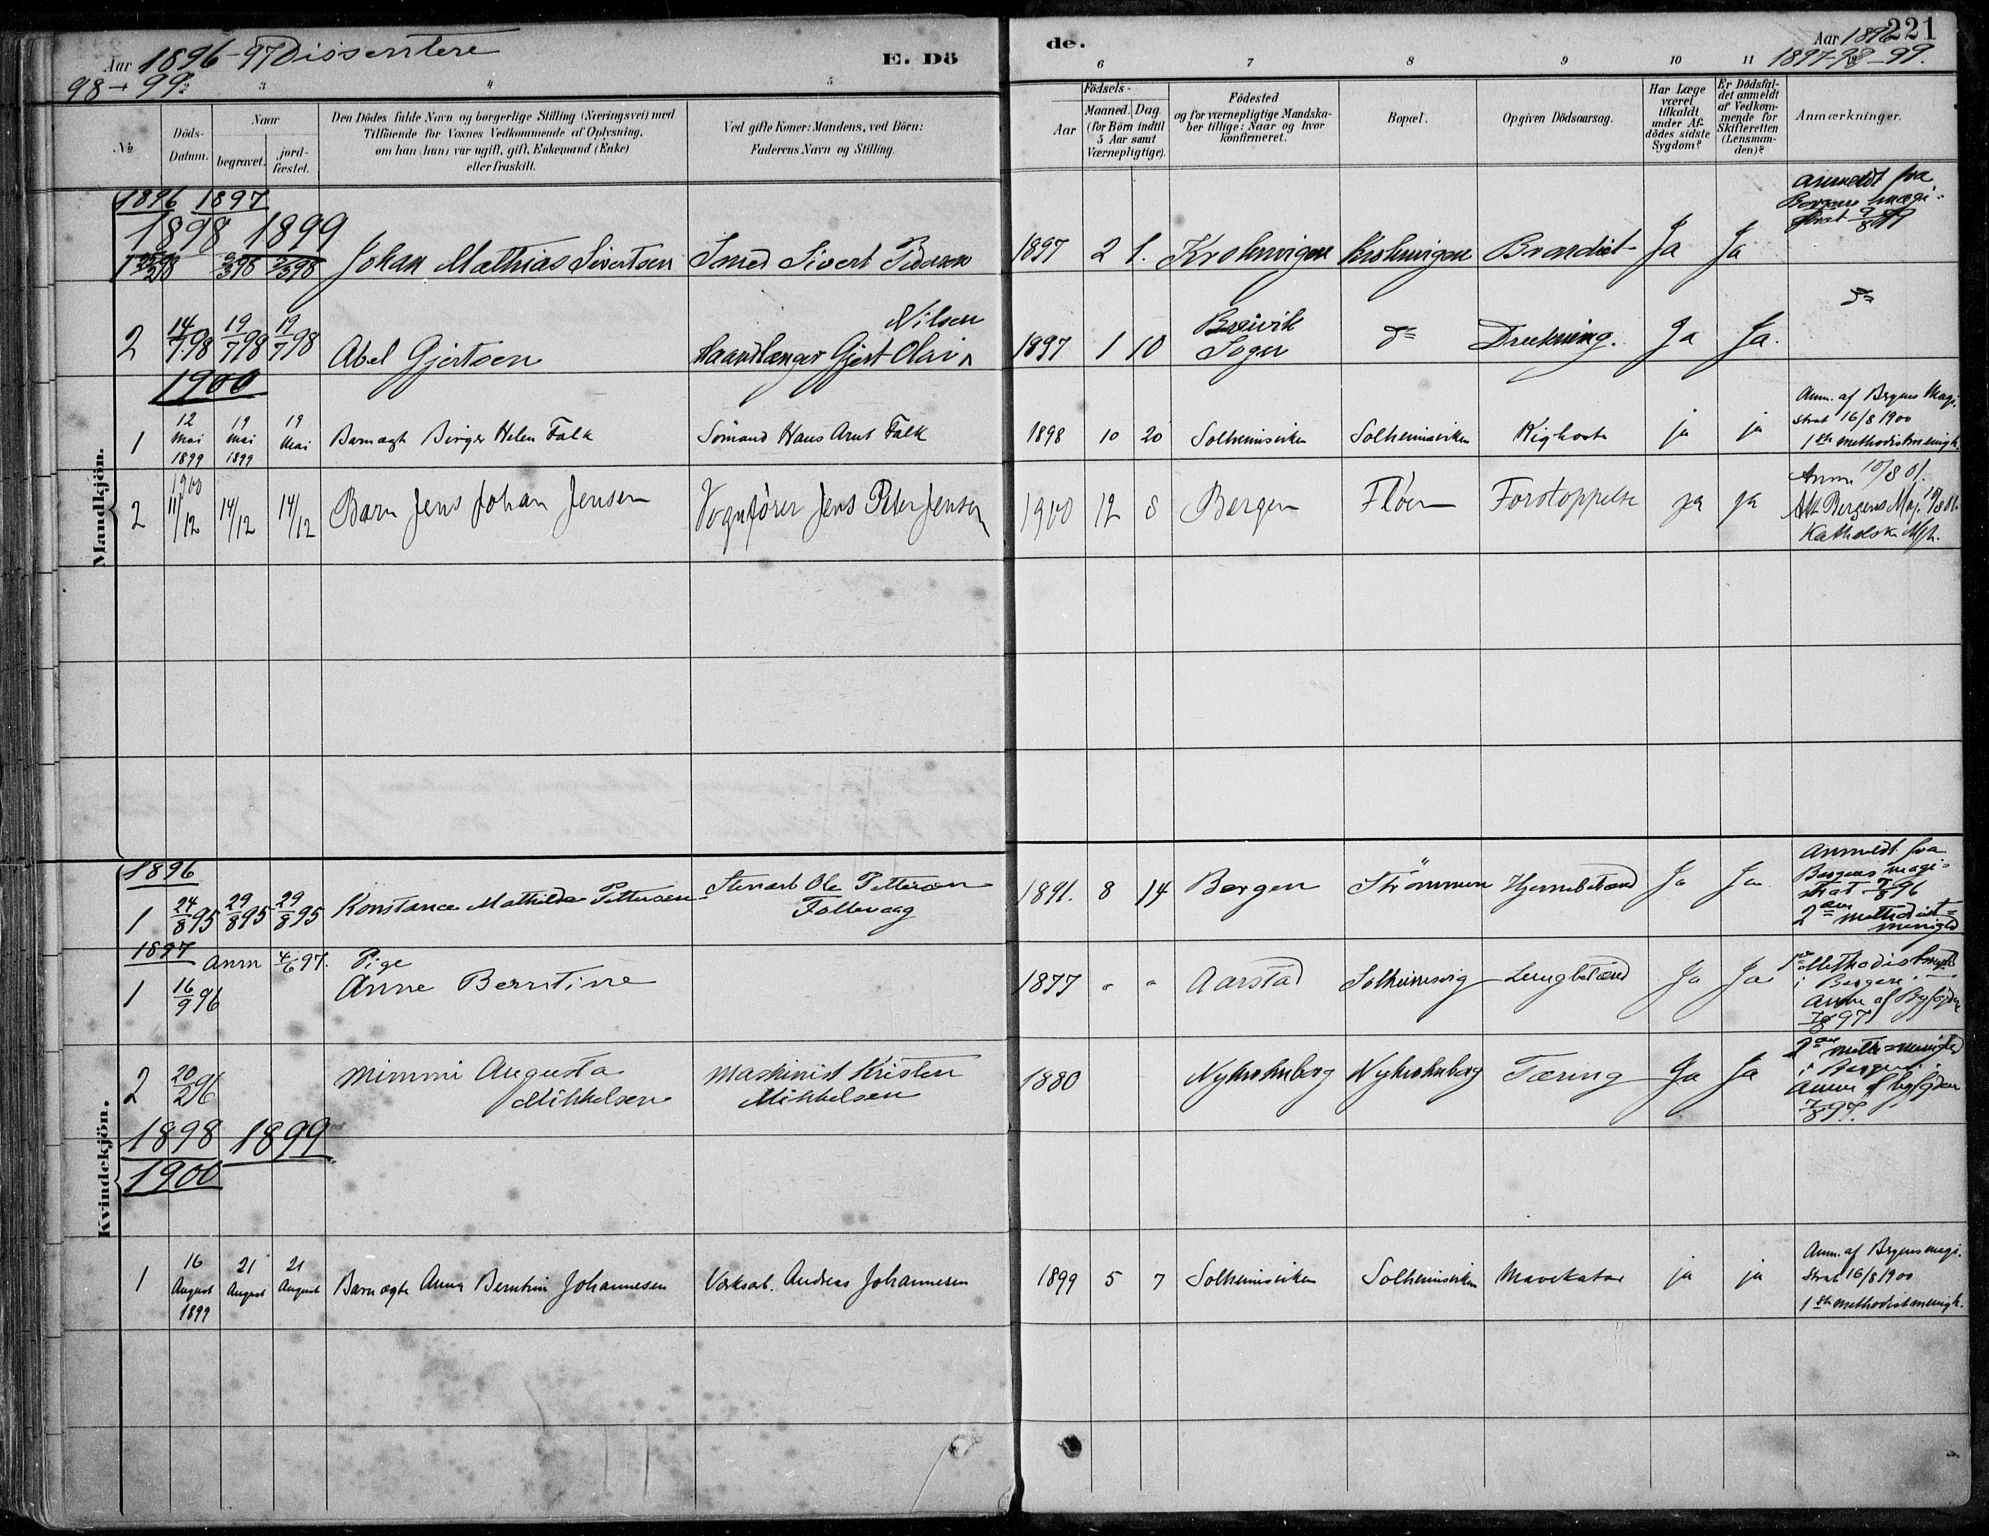 Aar 1896-97 Dissentere
98-99.
E. Dö
de.
Aar 1896
221
1897-98-99.
3
4
5
6
7
8
9
10
11
No
Döds-Datum.
Naar
begravet.
jord-fæstet.
Den Dödes fulde Navn og borgerlige Stilling (Næringsvei) med
Tilföiende for Voxnes Vedkommende af Oplysning,
om han (hun) var ugift, gift, Enkemand (Enke)
eller fraskilt.
Ved gifte Koner: Mandens, ved Börn:
Faderens Navn og Stilling.
Födsels-
Aar
Maaned. Dag.
(for Börn indtil
5 Aar samt
Værnepligtige).
Födested
og for værnepligtige Mandska-
ber tillige: Naar og hvor
konfirmeret.
Bopæl.
Opgiven Dödsaarsag.
Har Læge
været
tilkaldt
under Af-
dödes sidste
Sygdom?
Er Dödsfal-
det anmeldt
af Vedkom-
mende for
Skifteretten
(Lensman-
den)?
Anmærkninger.
Mandkjön.
1896 1897
1898 1899
1 2/3 98 2/3 98 Johan Mathias Sivertsen Smed Sivert Pedersen 1897 2 1. Krohnvigen Krohnvigen Brandsot Ja Ja
anmeldt fra
Bergens magi-
strat 9/8 99
2 14/7 98 19/7 98 19/7 98 Abel Gjertsen Haandlanger Gjert Olai Nilsen 1897 1 10 Breivik Sogn do Drukning. Ja Ja. do
1900
1 12 Mai 1899 19 Mai 1899 19 Mai Barn ægte Birger Helen Falk Sömand Hans Arnt Falk 1898 10 20 Solheimsviken Solheimsviken Kighoste ja ja
Anm. af Bergens Magi-
strat 16/8 1900
1ste methodistmenigh.
2 1900 11/12 14/12 14/12 Barn Jens Johan Jensen Vognfører Jens Peter Jensen 1900 12 8 Bergen Fløen Forstoppelse ja ja
Anm 10/8 01.
Att. Bergens Mag. 10/8 01.
Katholsk Mgh.
Kvindekjön.
1896
1 24/8 95 29/8 95 29/8 95 Konstance Mathilde Pettersen Stenarb Ole Pettersen 1891. 8 14 Bergen Strömmen Hjernebetænd Ja Ja
Anmeldt fra
Bergens magi-
strat 96
2den methodist-
menighed
1897 anm 4/6 97.
1 16/9 96 Pige
Anne Berntine 1877 " " Aarstad Solheimsvig Lungebetænd Ja Ja
1ste Methodistmgh
i Bergen
anm af Byfogden
7/8 97
2 20/2 96 Mimmi Augusta
Mikkelsen Maskinist Kristen
Mikkelsen 1880 Nykrohnborg Nykrohnborg Tæring Ja Ja
2den meth-menighed
i Bergen
anm af byfogden
7/8 97.
1898 1899
1900
1 16 August 1899 21 August 21 August Barn ægte Anna Berntine Johannesen Værksarb. Andreas Johannesen 1899 5 7 Solheimsviken Solheimsviken Mavekatar ja ja
Anm. af Bergens magi-
strat 16/8 1900
1ste methodistmenigh.